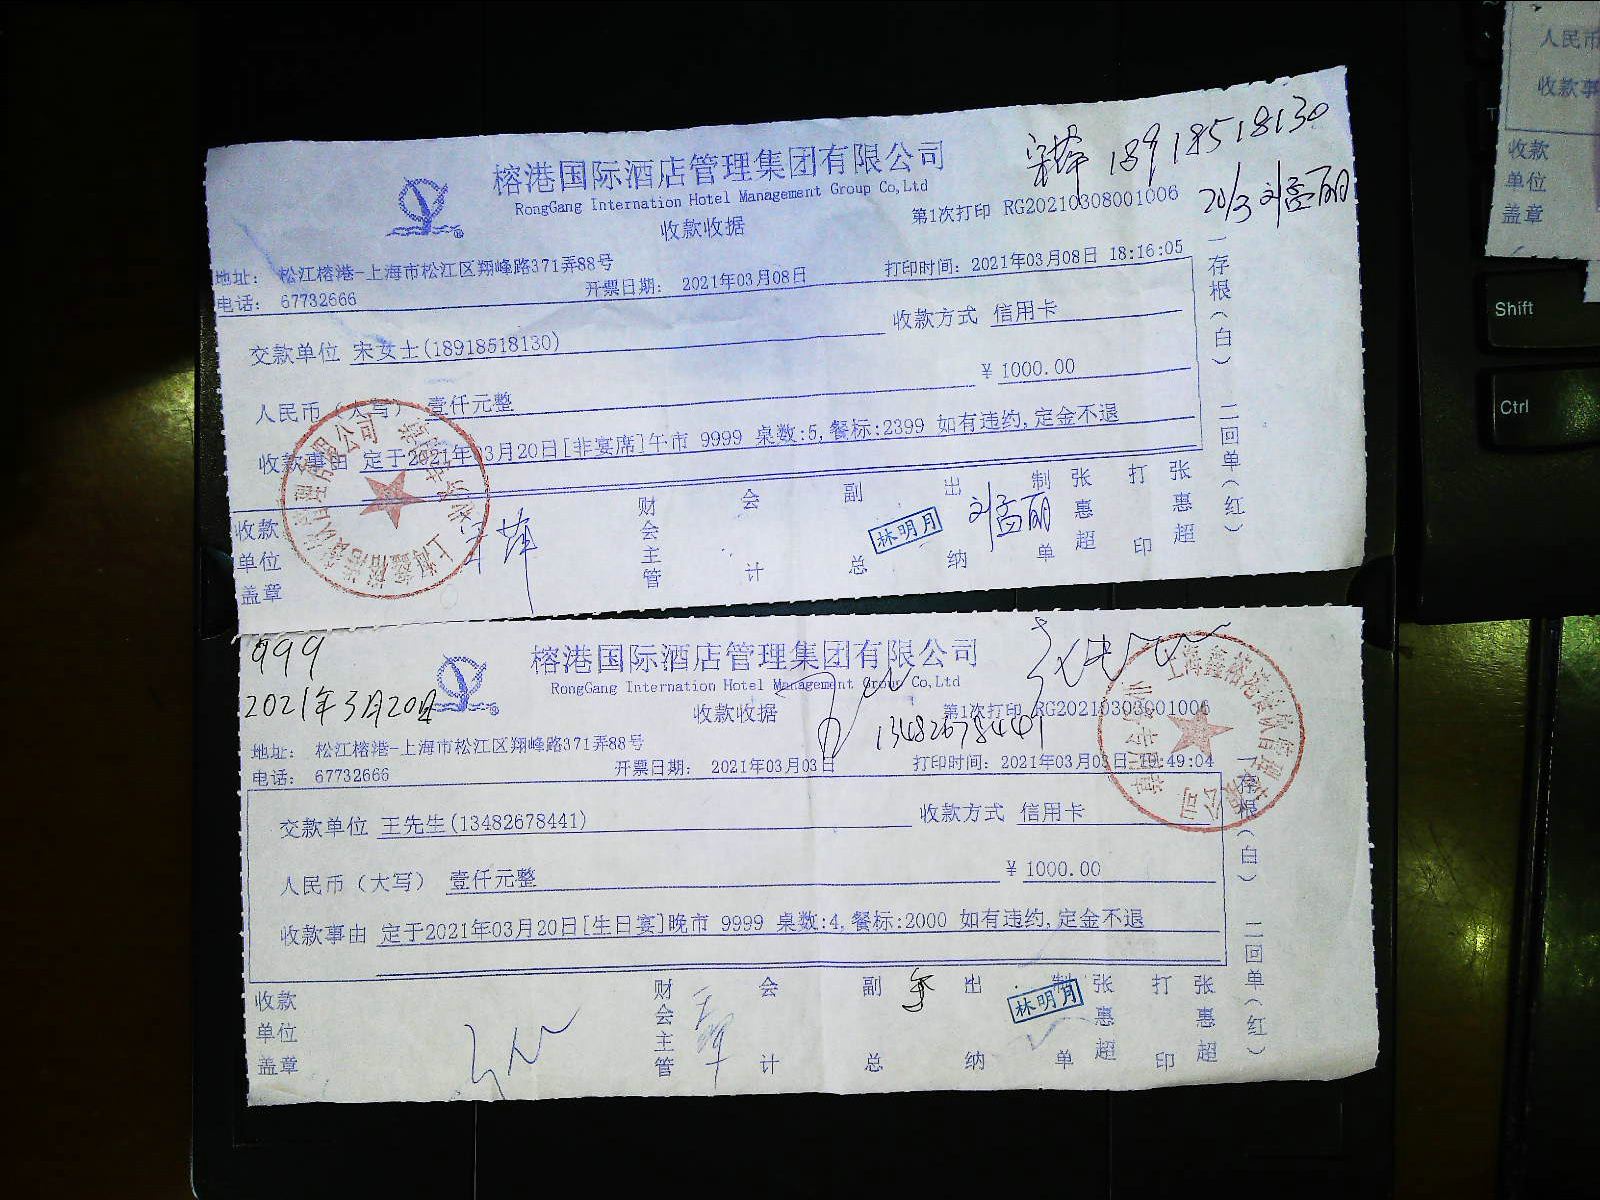 人民币
收款事
收款
单位
盖章
Shift
Ctrl
榕港国际酒店管理集团有限公司
RongGang Internation Hotel Management Group Co,Ltd
收款收据
18918518130
20/3 刘孟丽
第1次打印 RG20210308001006
地址: 松江榕港-上海市松江区翔峰路371弄88号
电话: 67732666
开票日期: 2021年03月08日
打印时间: 2021年03月08日 18:16:05
交款单位 宋女士(18918518130)
收款方式 信用卡
人民币（大写） 壹仟元整
¥ 1000.00
收款事由 定于2021年03月20日[非宴席]午市 9999 桌数:5,餐标:2399 如有违约,定金不退
收款单位盖章
财会主管
会计
副总
出纳
林明月
制单
刘孟丽
张惠超
打印
张惠超
一存根（白） 二回单（红）
999
2021年3月20日
榕港国际酒店管理集团有限公司
RongGang Internation Hotel Management Group Co,Ltd
收款收据
13482678441
第1次打印 RG20210303001006
地址: 松江榕港-上海市松江区翔峰路371弄88号
电话: 67732666
开票日期: 2021年03月03日
打印时间: 2021年03月03日 :49:04
交款单位 王先生(13482678441)
收款方式 信用卡
人民币（大写） 壹仟元整
¥ 1000.00
收款事由 定于2021年03月20日[生日宴]晚市 9999 桌数:4,餐标:2000 如有违约,定金不退
收款单位盖章
财会主管
会计
副总
出纳
制单
林明月
张惠超
打印
张惠超
一存根（白） 二回单（红）